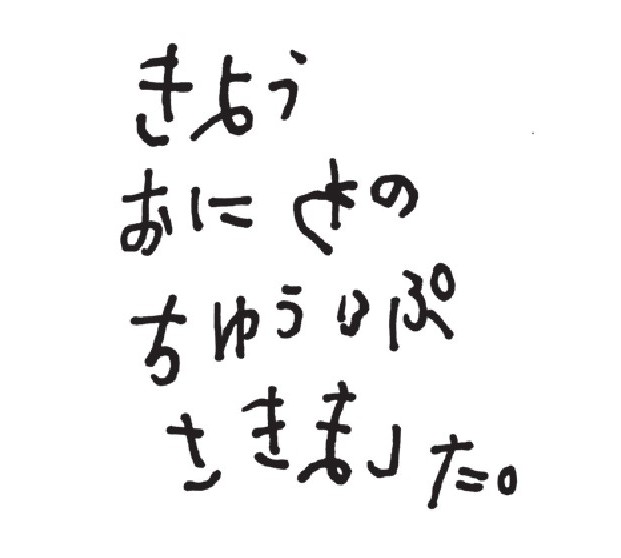 きよう
おにわの
ちゅうりぷ
さきました。